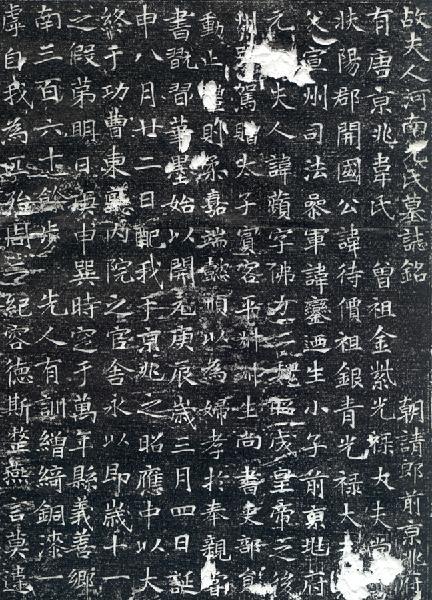 故夫人河南元氏墓誌銘 朝請郎前京兆府
有唐京兆韋氏 曾祖金紫光祿大夫尚
扶陽郡開國公諱待價祖銀青光祿大夫
父宣州司法參軍諱鑾迺生小子前京兆府
元夫人諱蘋字佛力二魏昭成皇帝之後
州駕贈太子賓客平叔叔生尚書吏部員
動止則柔嘉端懿順以為婦孝於奉親
書翫習華墨始以開元庚辰歲三月四日誕
申八月廿二日配我于京兆之昭應中以大
終于功曹東廳內院之官舍永以即歲十一
之假第明日庚申巽時窆于萬年縣義善鄉
南三百六十餘步 先人有訓繒綺銅漆一
虖自我為匹殆周一紀容德斯整燕言莫違